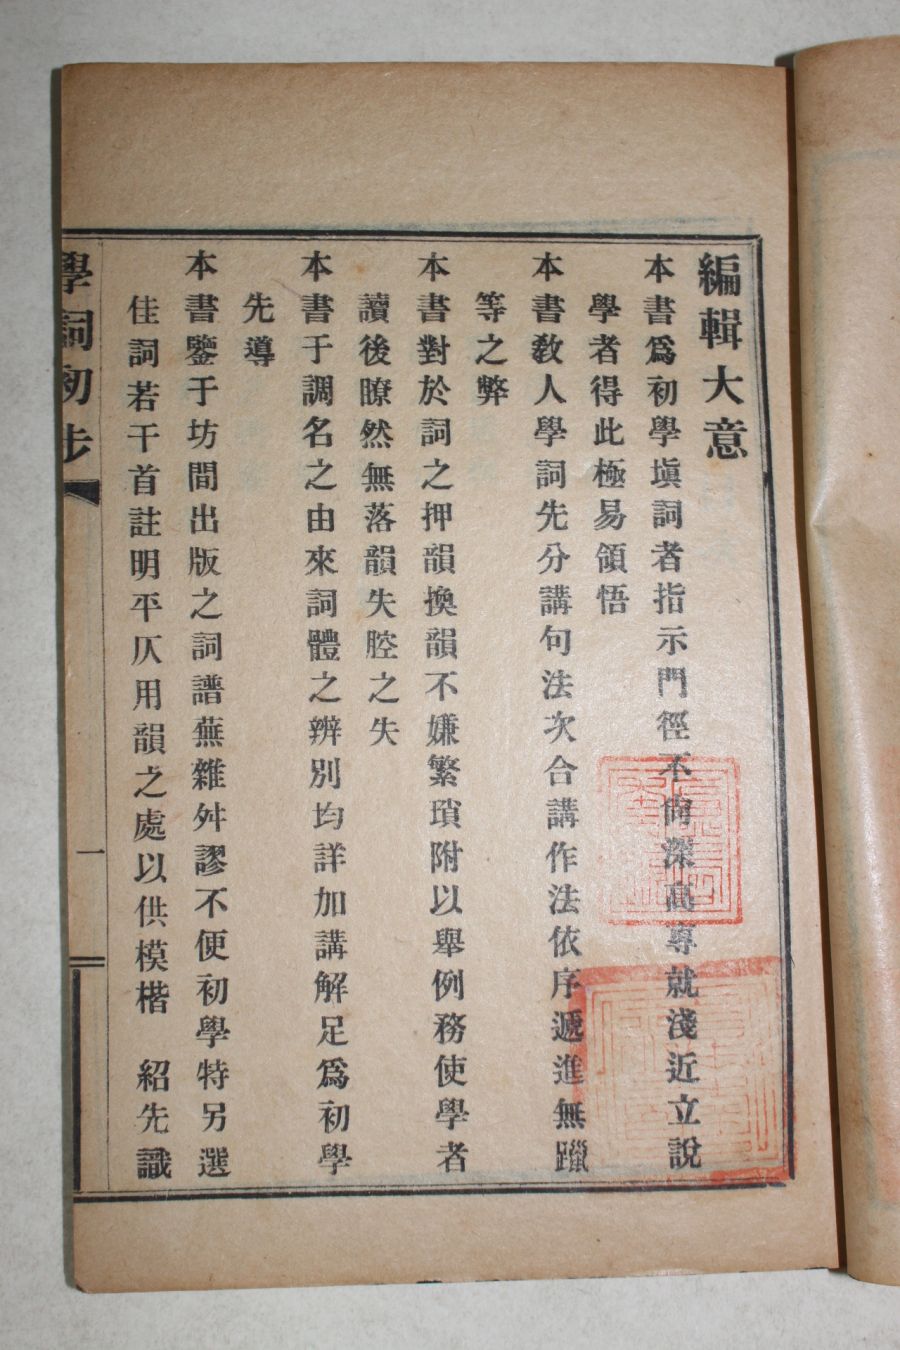 編輯大意
本書爲初學塡詞者指示門徑不尙深高專就淺近立說
學者得此極易領悟
本書敎人學詞先分講句法次合講作法依序遞進無躐
等之弊
本書對於詞之押韻換韻不嫌繁瑣附以舉例務使學者
讀後瞭然無落韻失腔之失
本書于調名之由來詞體之辨別均詳加講解足爲初學
先導
本書鑒于坊間出版之詞譜蕪雜舛謬不便初學特另選
佳詞若干首註明平仄用韻之處以供模楷　紹先識
學詞初步
一